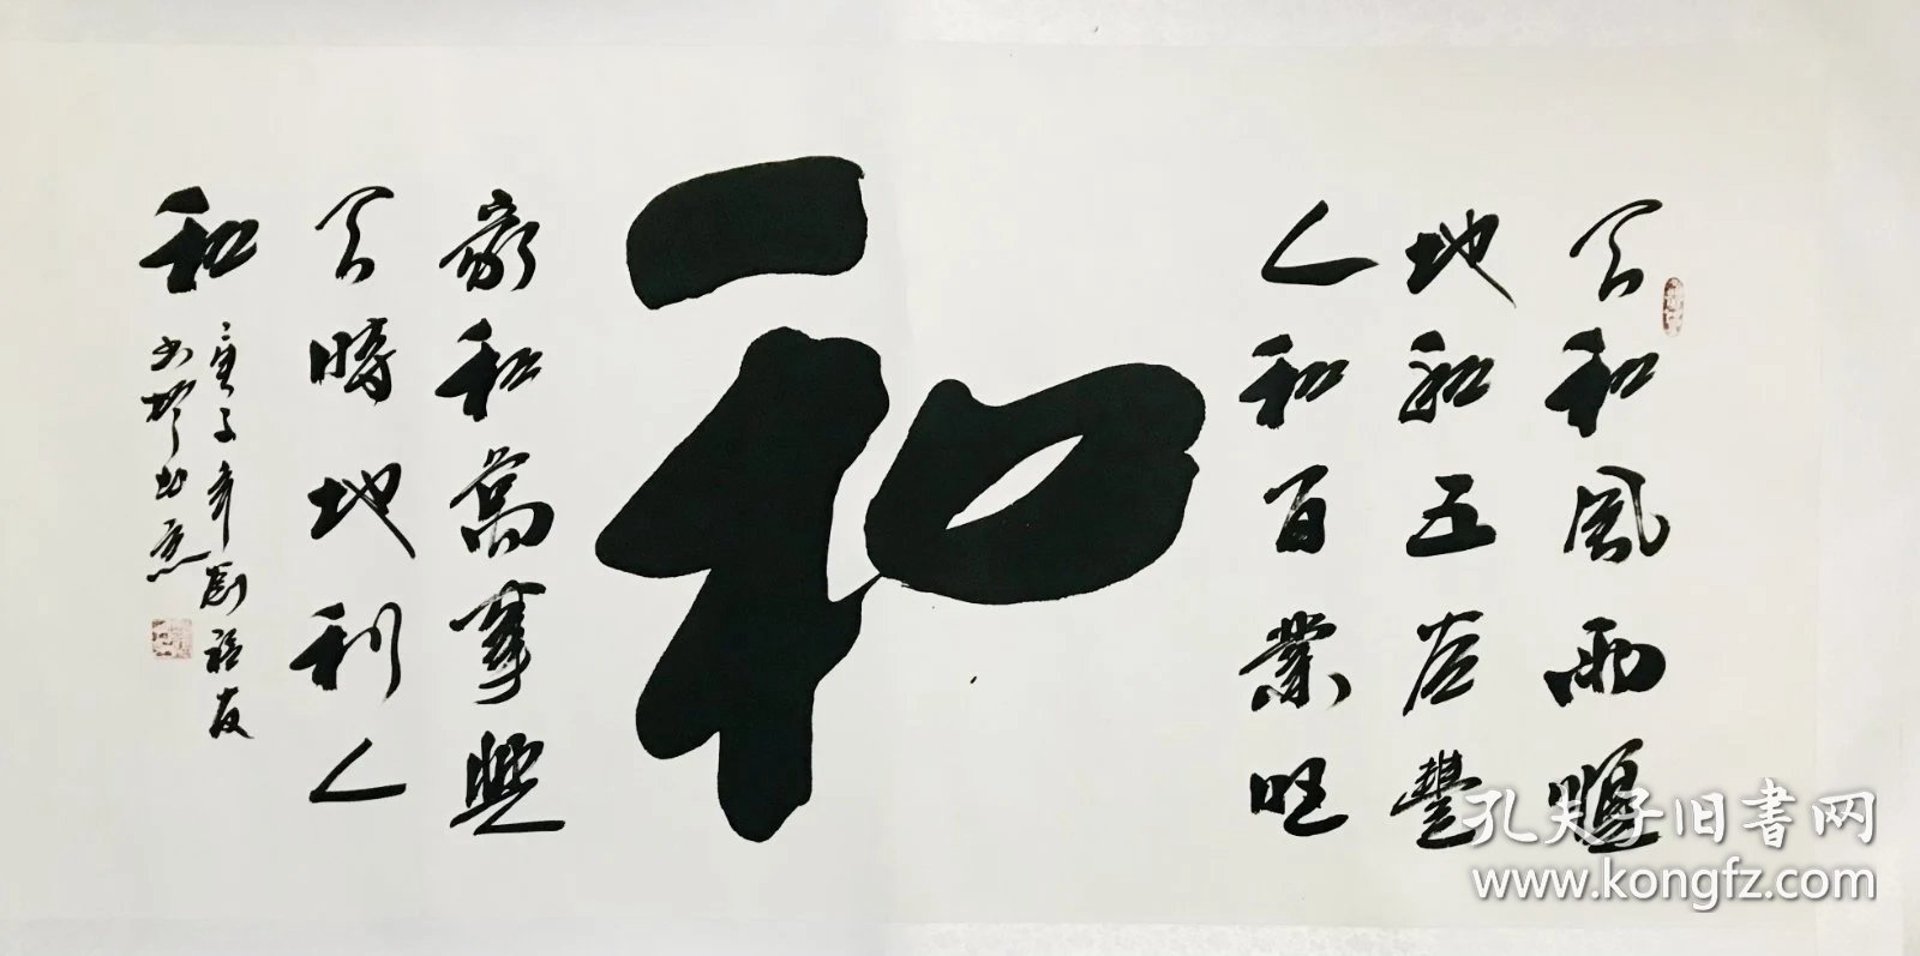 天和風雨順
地和五谷豐
人和百業旺
和
家和萬事興
天時地利人
和
庚子年劉福友
书於北京
孔夫子旧書网
www.kongfz.com